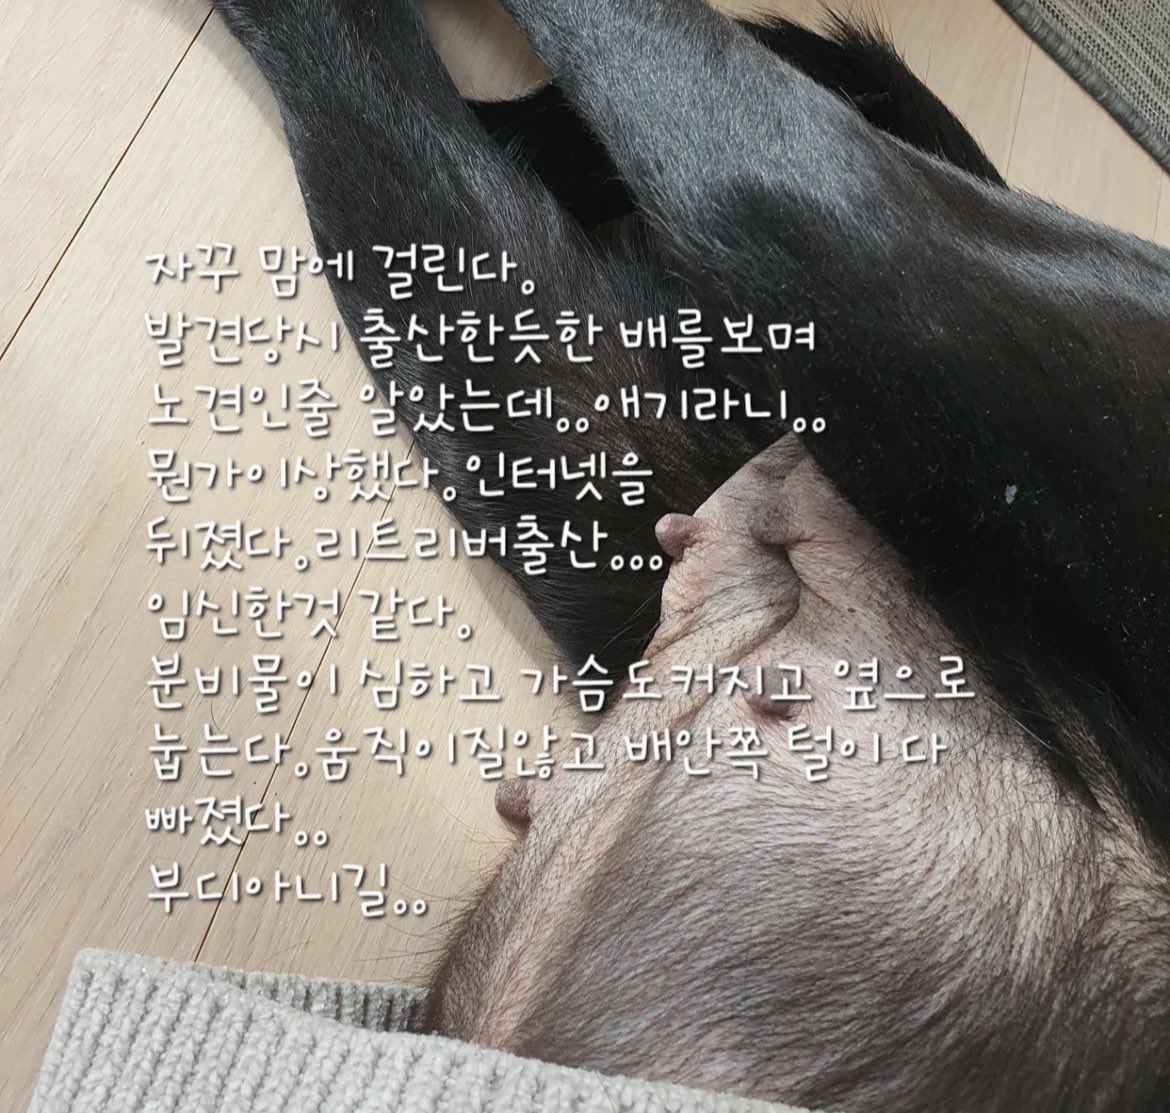 자꾸 맘에 걸린다.
발견당시 출산한듯한 배를보며
노견인줄 알았는데..애기라니..
뭔가이상했다.인터넷을
뒤졌다.리트리버출산...
임신한것 같다.
분비물이 심하고 가슴도커지고 옆으로
눕는다.움직이질않고 배안쪽 털이 다
빠졌다..
부디아니길..